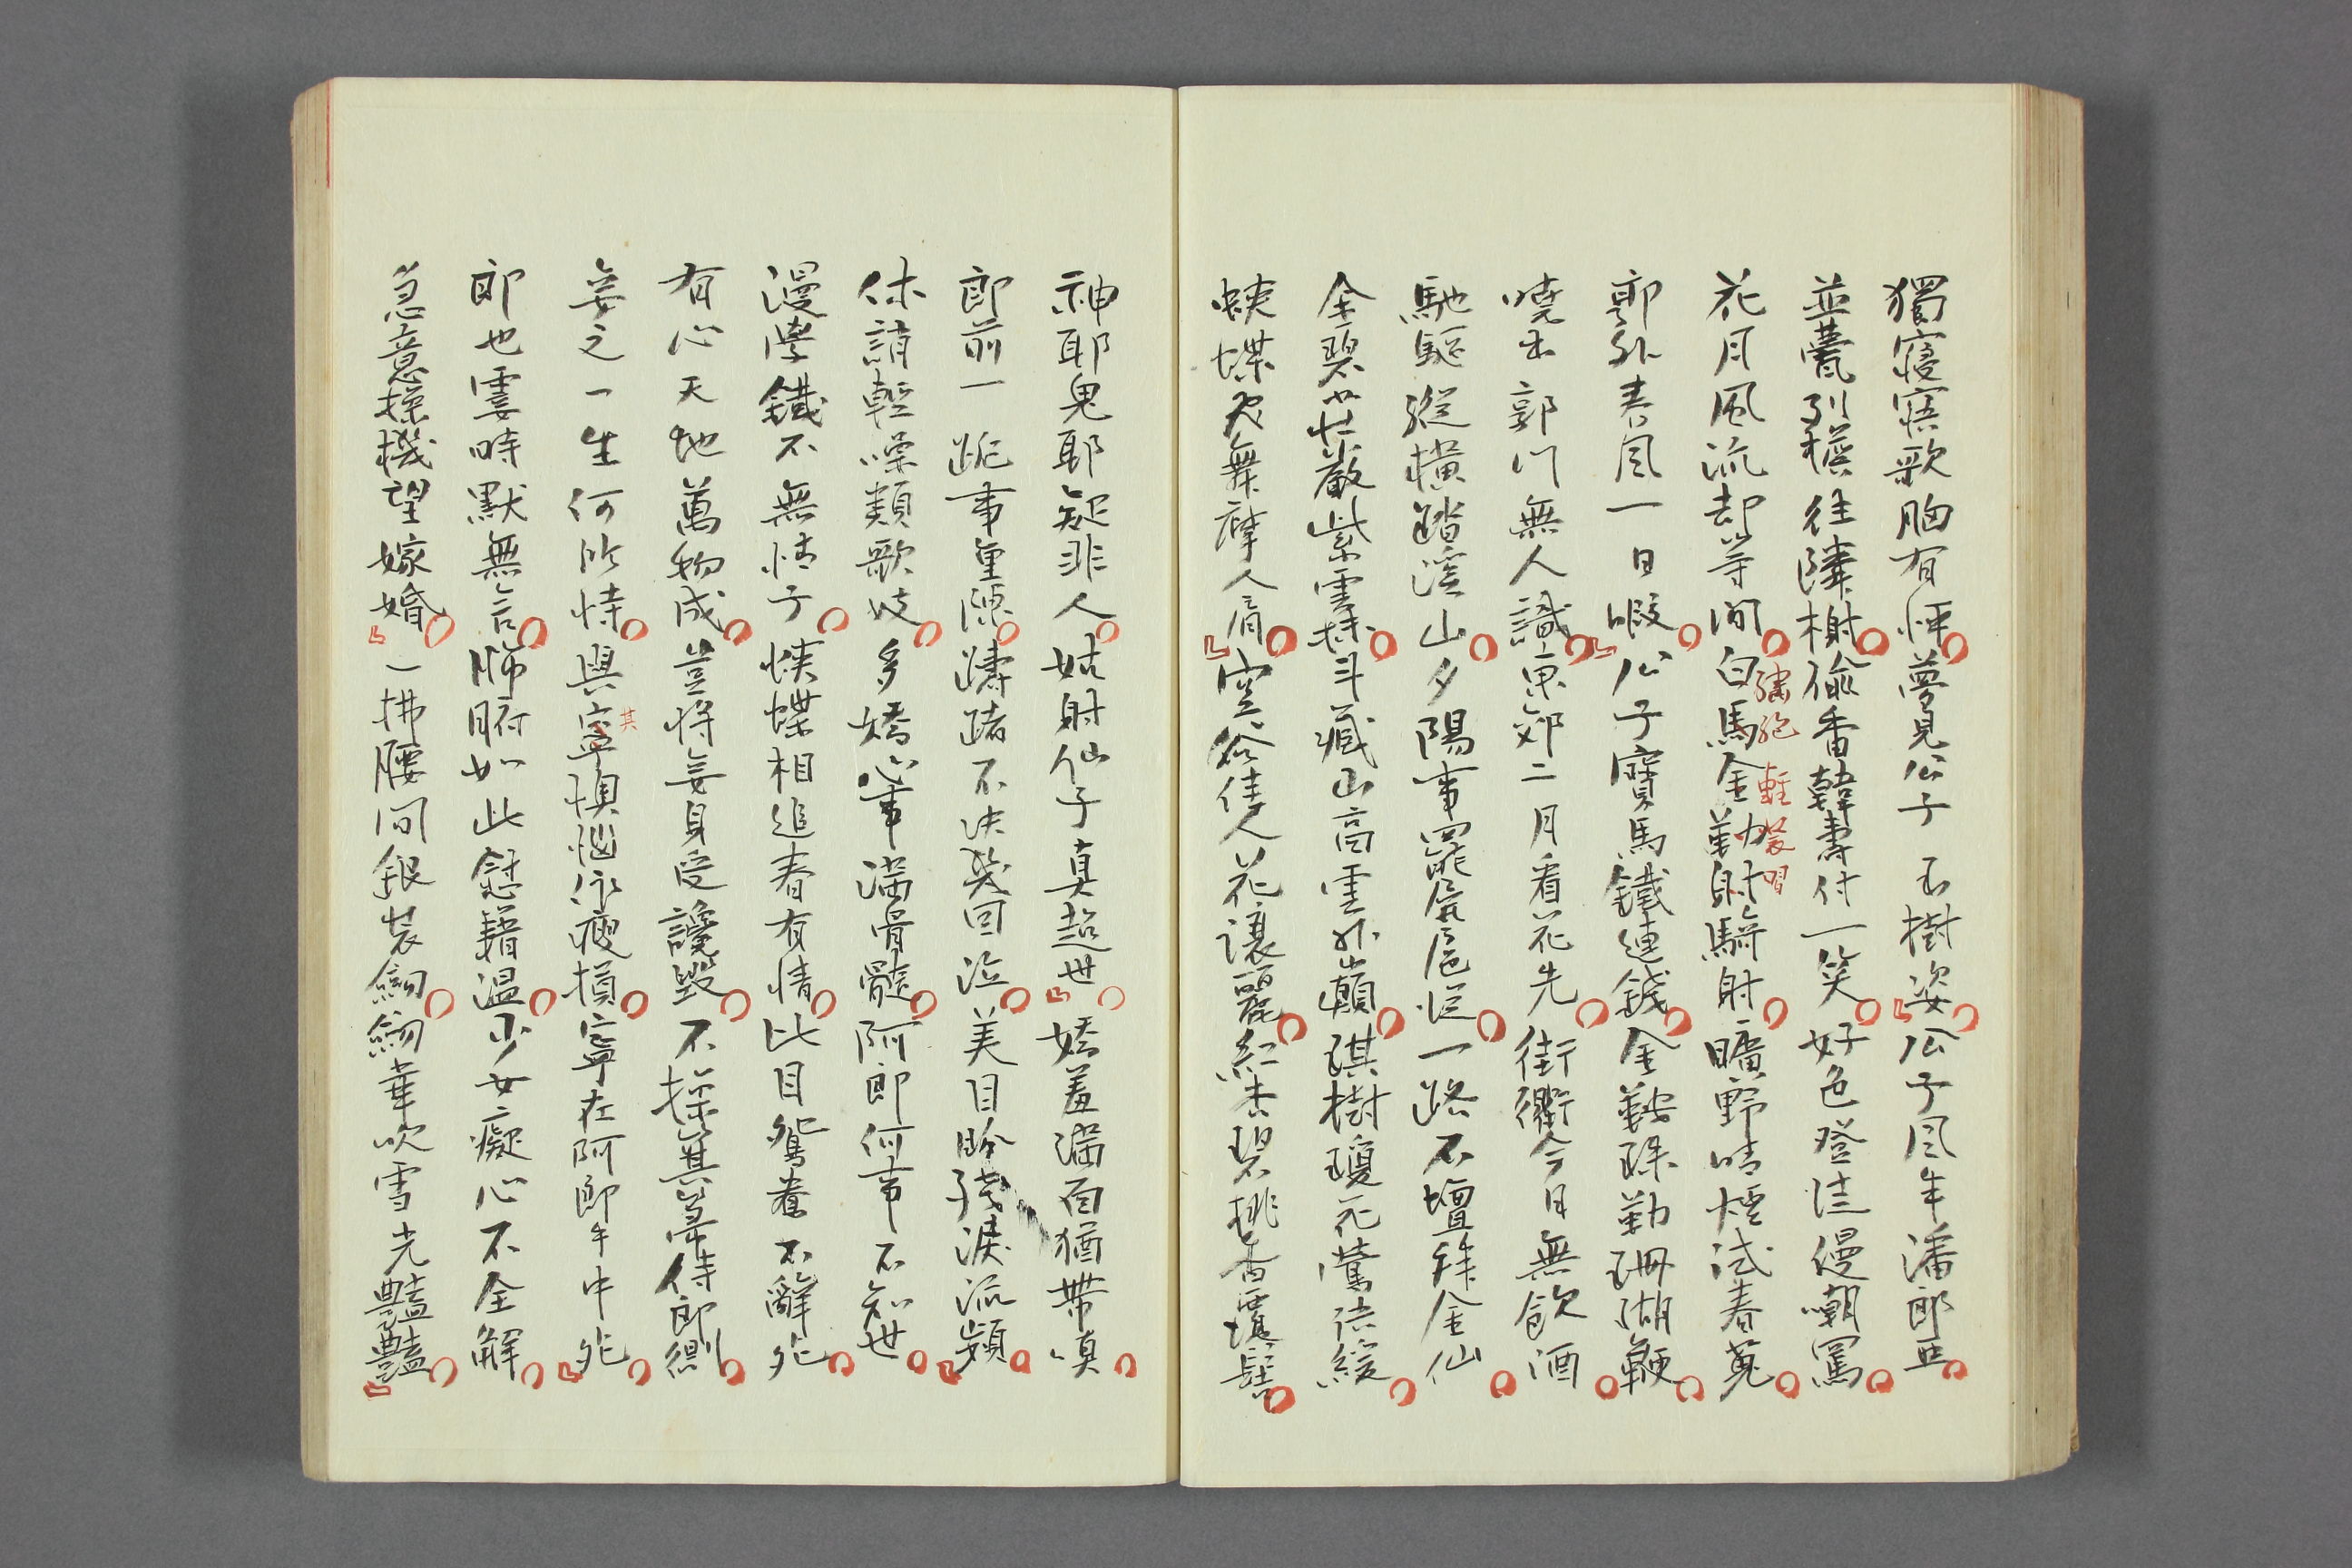 獨寢寤歌胸有怦夢見公子玉樹姿公子風牛潘郎亞
並甍列穩往隣榭偸香韓壽付一笑好色登徒僈嘲罵
花月風流却等閒白馬金勒射騎射曠野晴煙試春蒐
繡袍輕裝習
郭外春風一日暇公子寶馬鐵連錢金鞍珠勒珊瑚鞭
曉出郭門無人識東郊二月看花先街衢今日無飲酒
馳驅縱橫踏溪山夕陽寺罷扈從一路石壇拜金仙
金碧莊嚴紫雲採斗藏山高雲外巓琪樹瓊花鶯語緩
蛺蝶飛舞摩人肩空谷佳人花讓麗紅杏碧桃香環髻
神耶鬼耶疑非人姑射仙子真超世嬌羞滿面猶帶嗔
郎前一跪事重陳躊躇不決幾回泣美目盼殘淚流頰
休誚輕噪類歌妓多嬌心事滿骨髓阿郎何事不知世
漫學鐵石無情子蛺蝶相追春有情比目鴛鴦不辭死
有心天地萬物成豈將妾身受讒毀不操箕箒侍郎側
妾之一生何所恃與寧懊惱永瘦損寧在阿郎手中死
其
郎也霎時默無言肺腑如此慰藉溫少女癡心不全解
急意操機望嫁婚一拂腰間銀裝劒劒華吹雪光豔豔